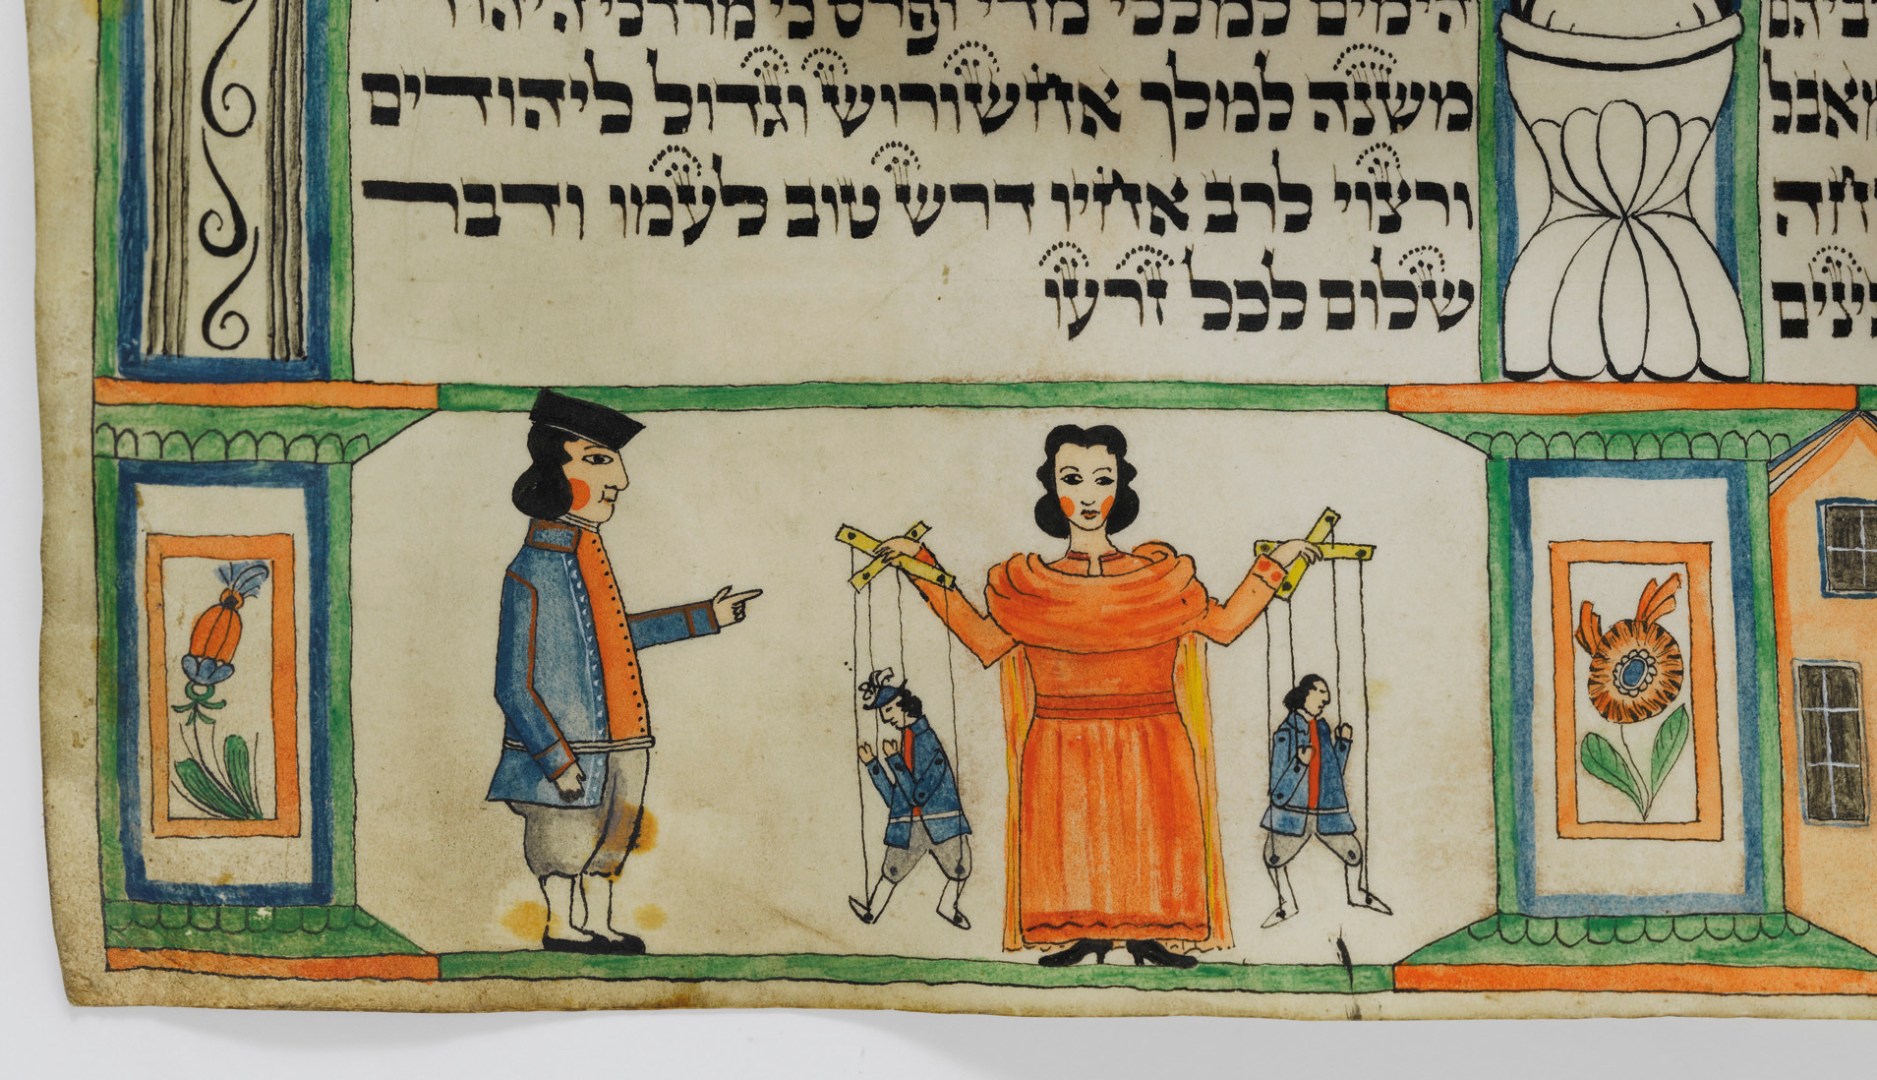 הימים למלכי מדי ופרס כי מרדכי היהודי
משנה למלך אחשורוש וגדול ליהודים
ורצוי לרב אחיו דרש טוב לעמו ודבר
שלום לכל זרעו